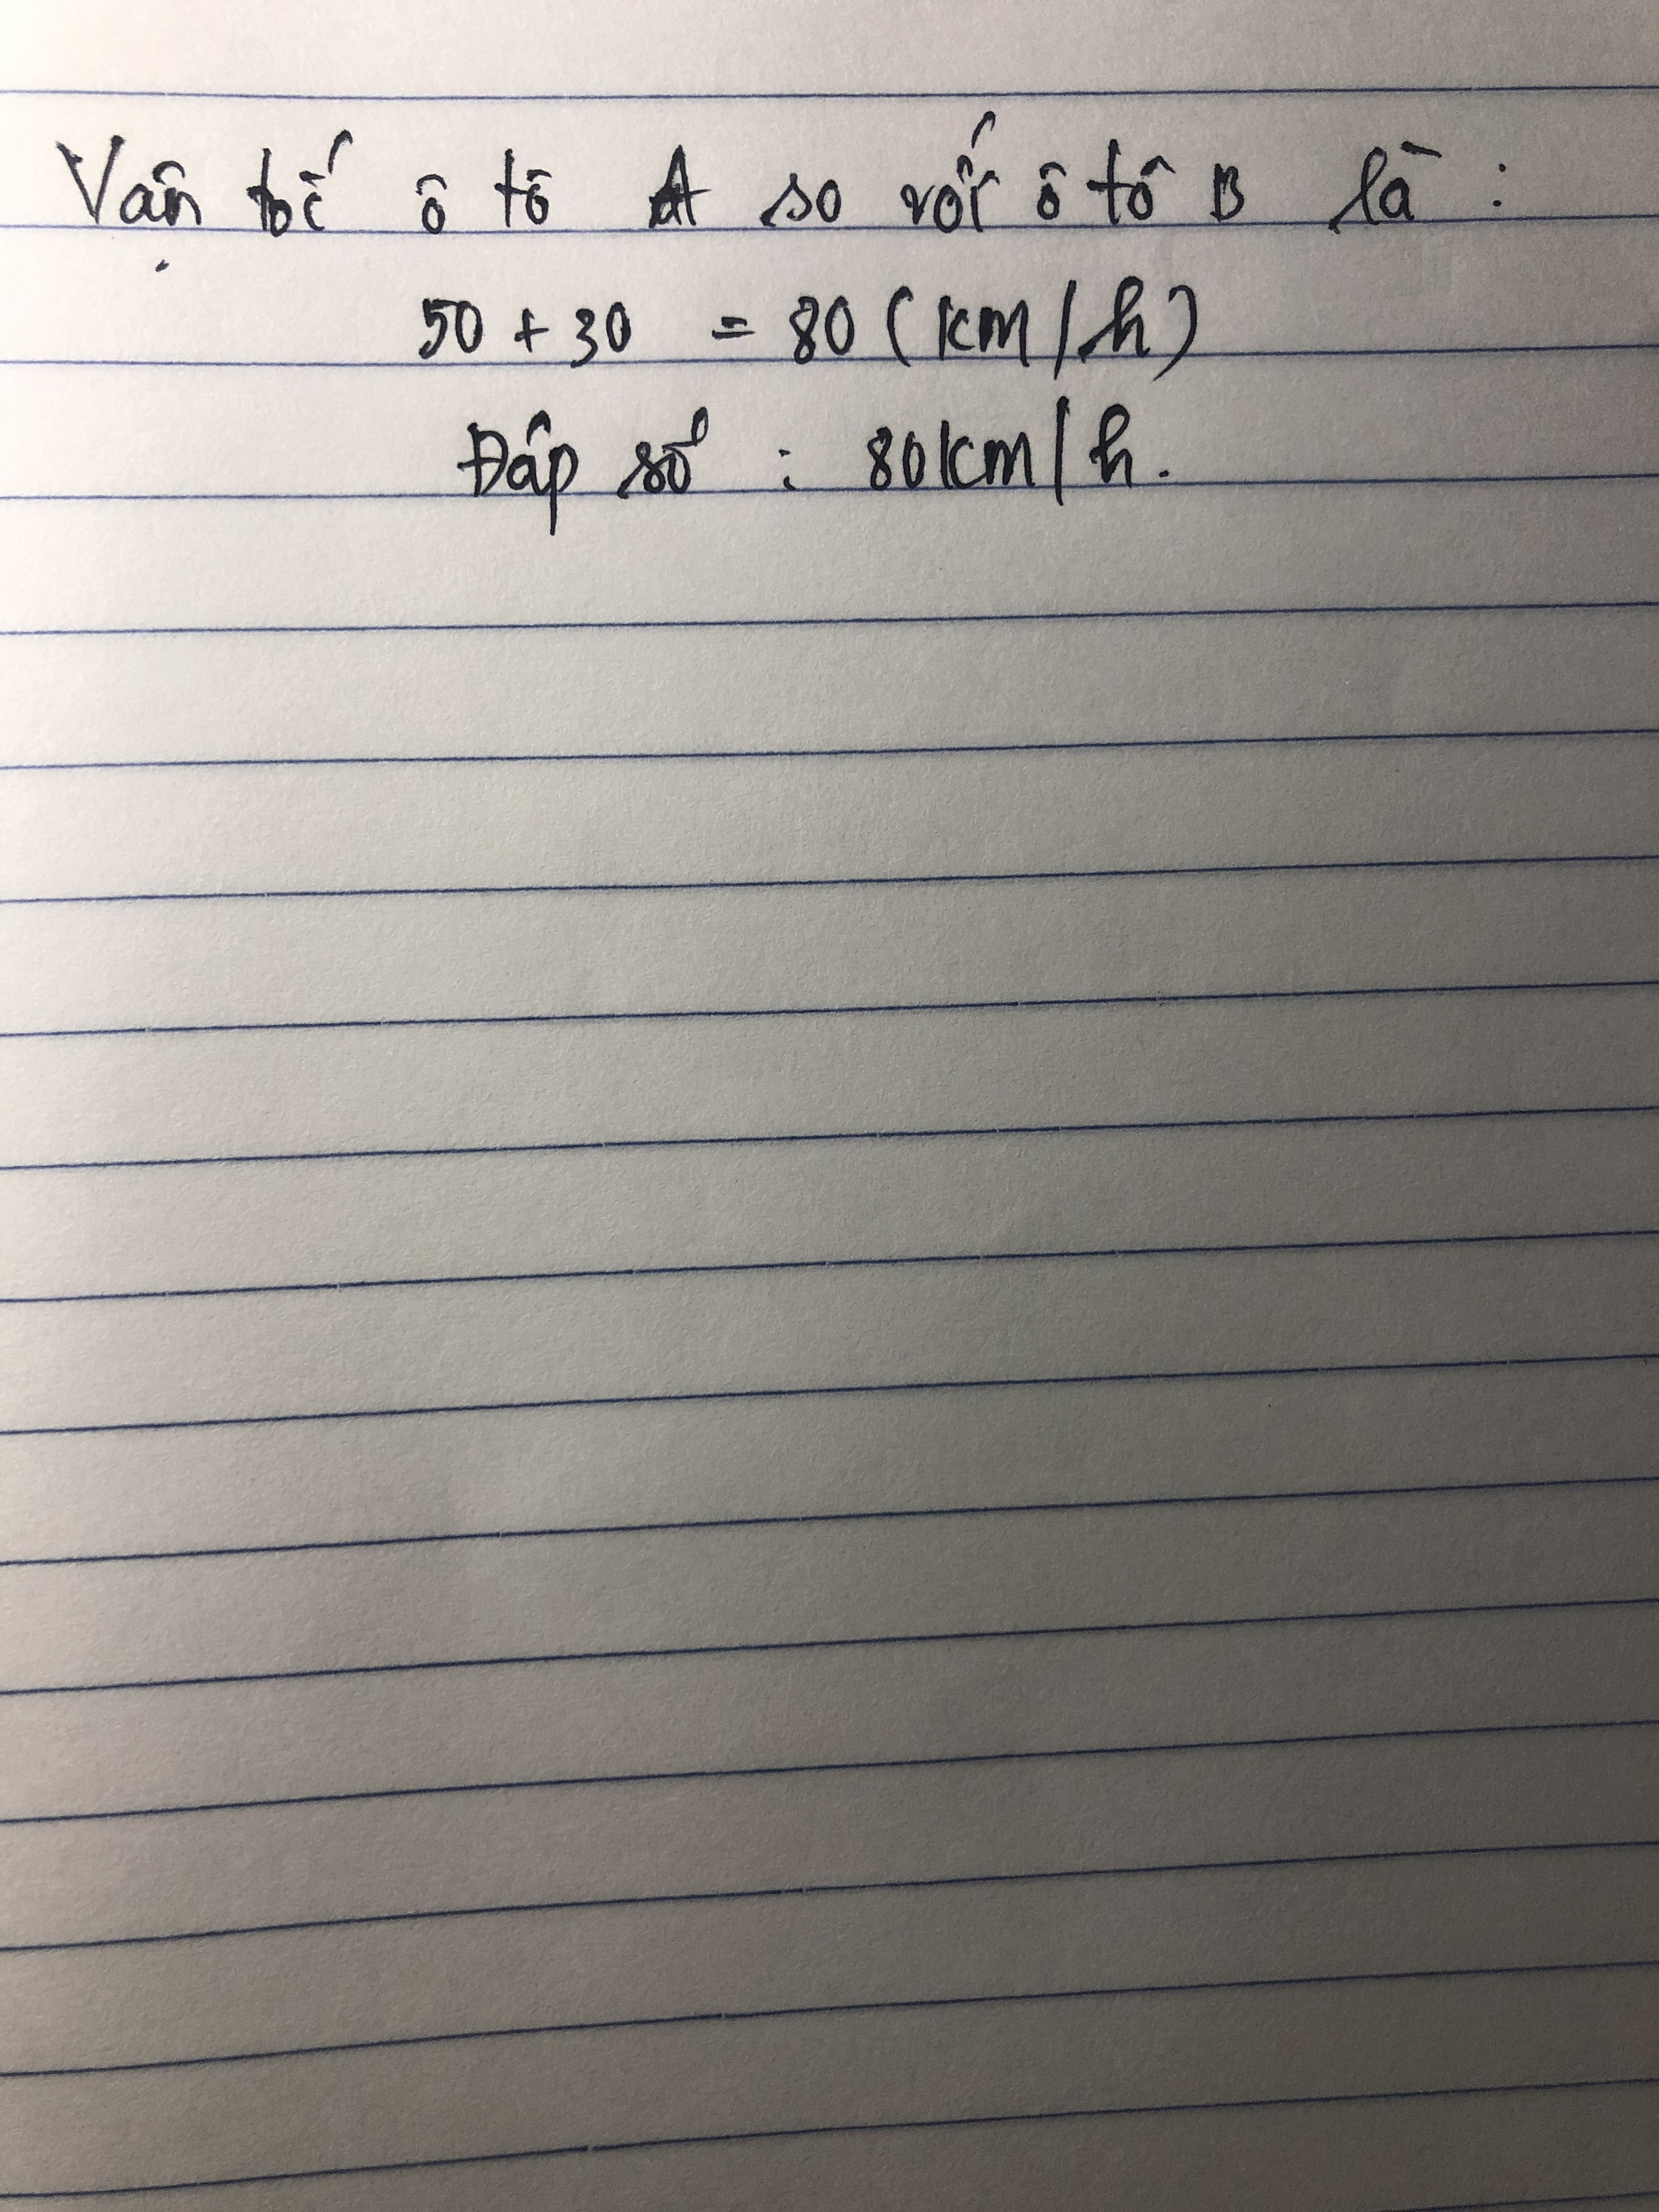 Vận tốc ô tô A so với ô tô B là :
50 + 30 = 80 (km/h)
Đáp số : 80km/h.